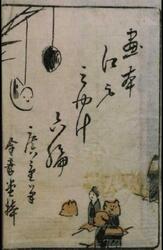 畫本
江戸
みやけ
六編
廣重筆
金幸堂梓